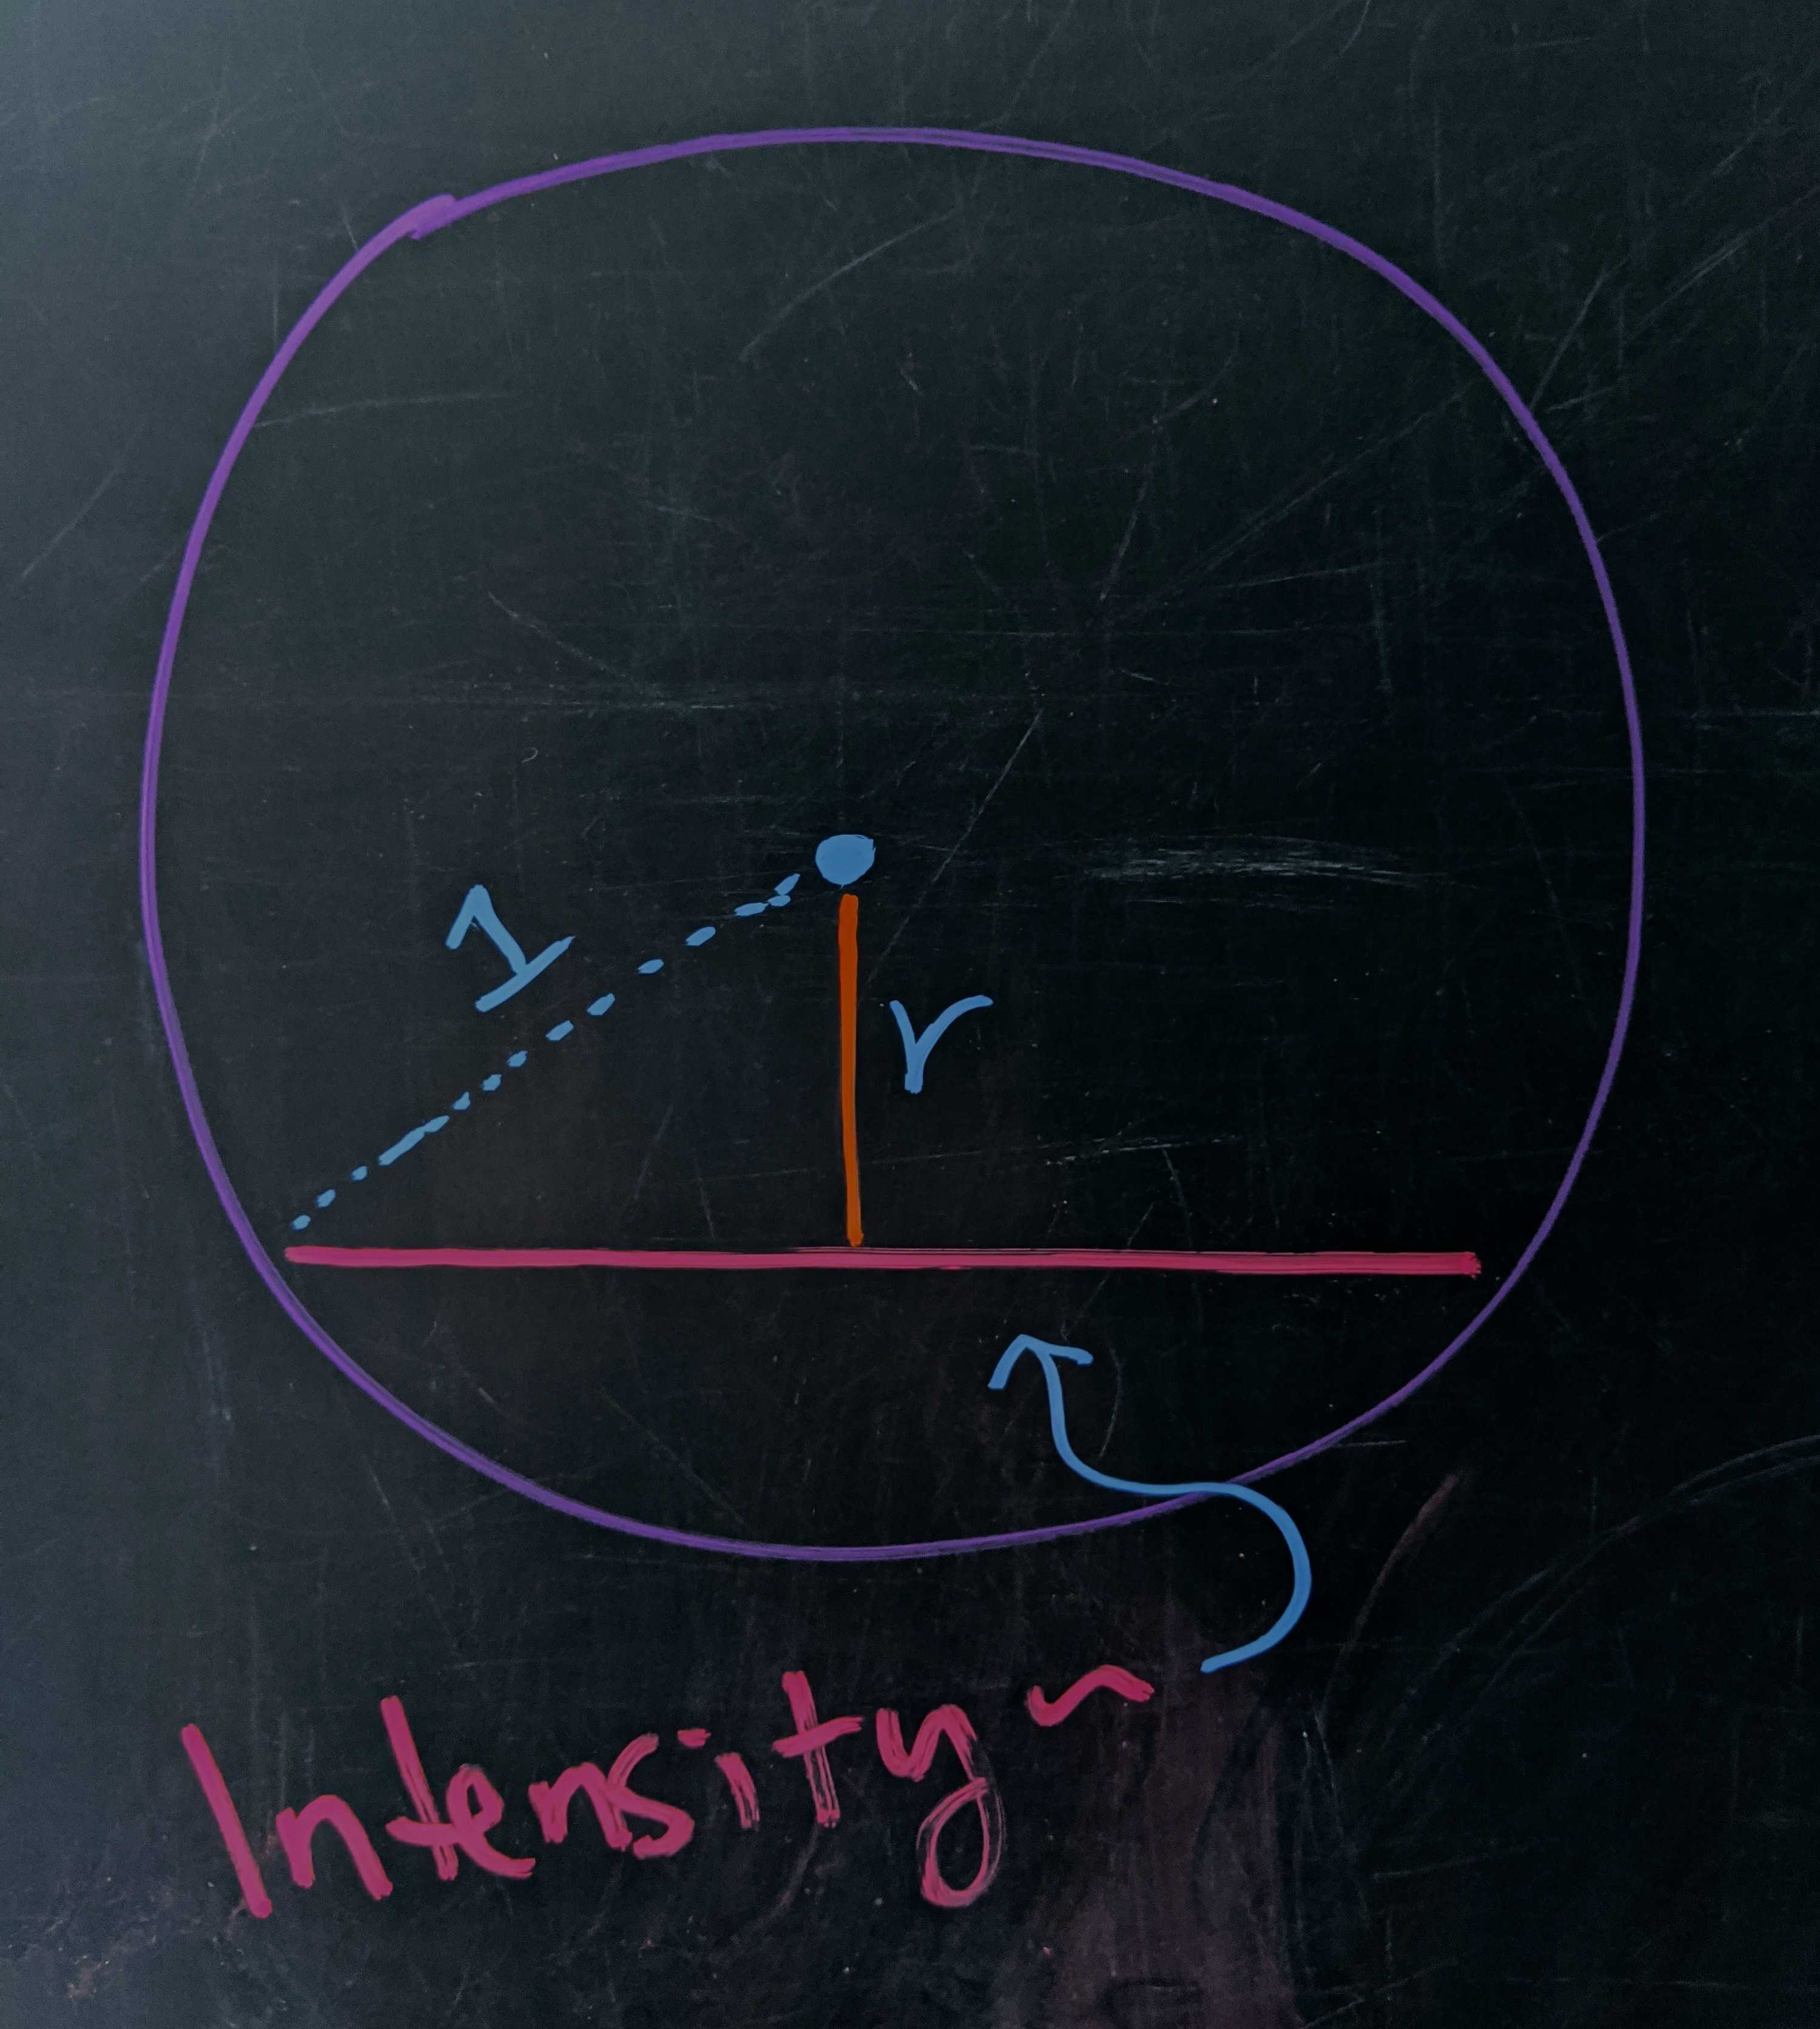 1
r
Intensity ~